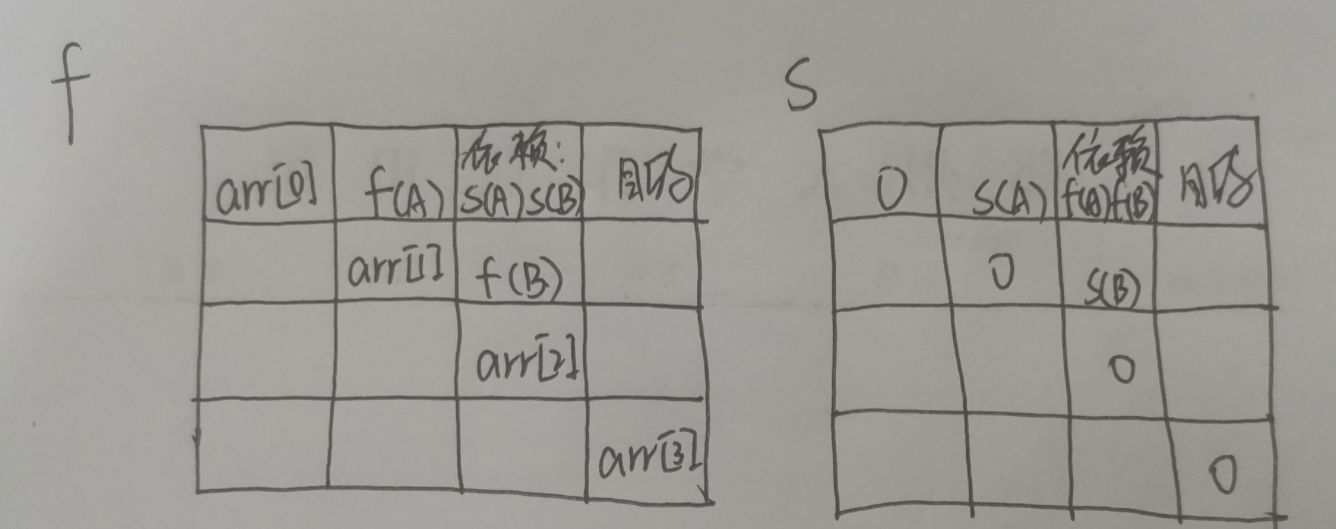 f
S
arr[0] f(A) 依赖: S(A)S(B) 目标
arr[1] f(B)
arr[2]
arr[3]
0 S(A) 依赖 f(A)f(B) 目标
0 S(B)
0
0